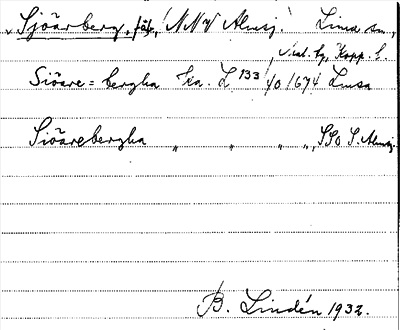 Sjöarberg, fäb, NNV Älvsj. Lima sn,
V.dal. tg, Kopp. l.
Siöare = bergha Ka. L 133/40 1674 Lima
Siöarebergha " " " ", SSO S. Älvsj.
B. Lindén 1932.